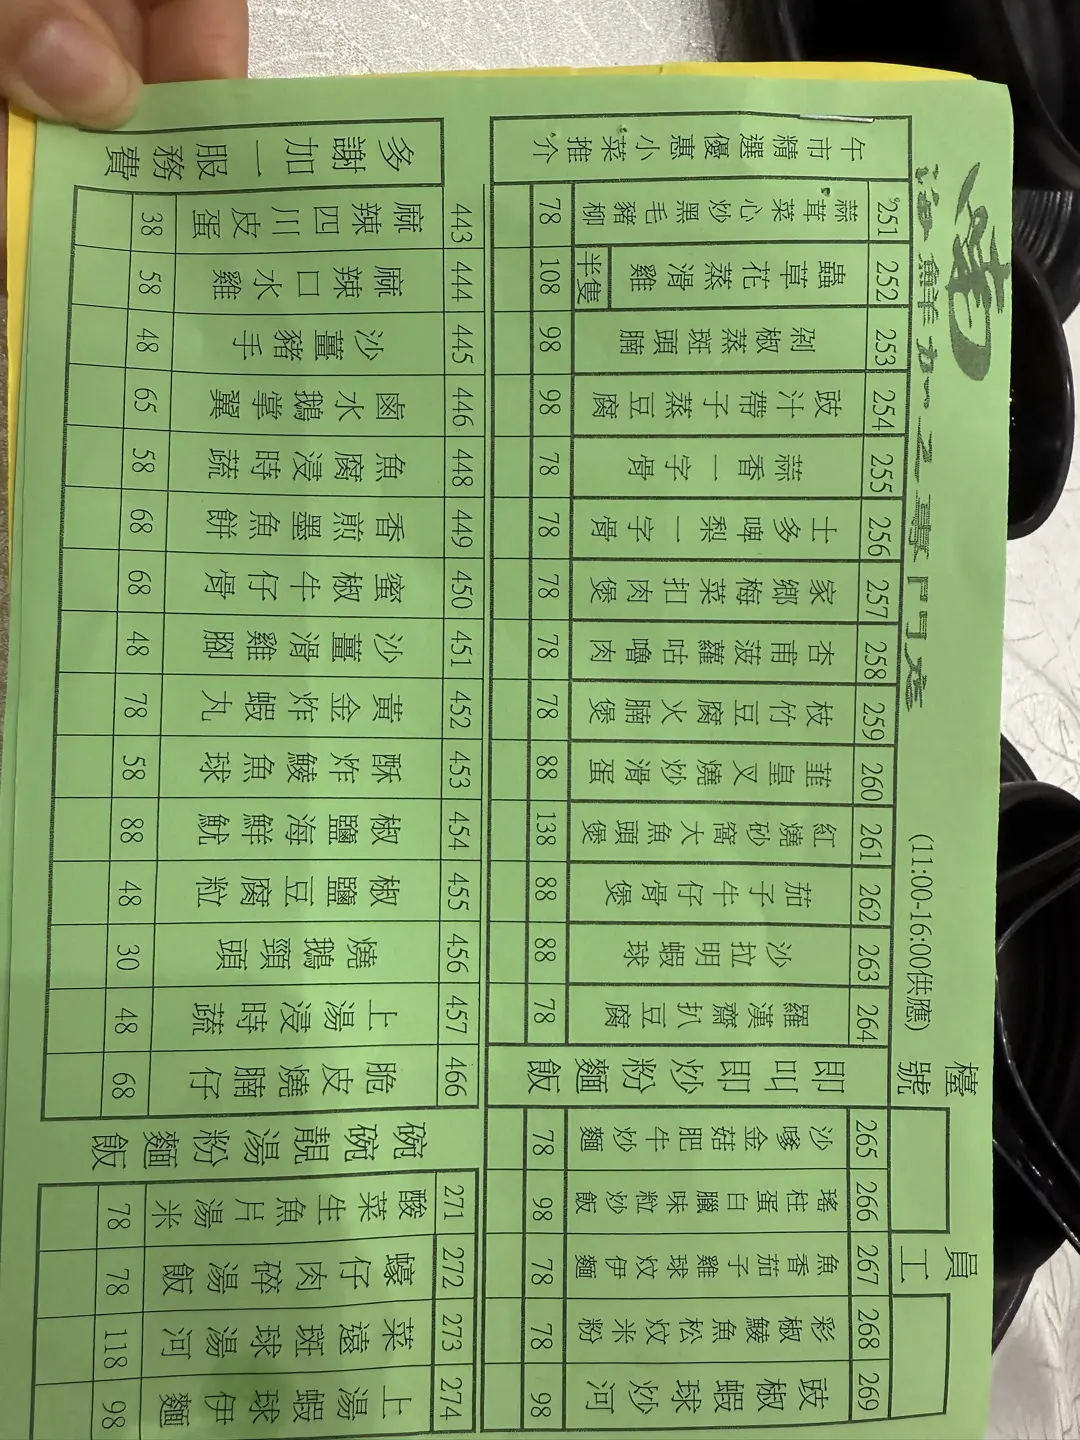 海鮮加工專門店
(11:00-16:00供應)
檯號
員工
午市精選優惠小菜推介
251 蒜茸菜心炒黑毛豬柳 78
252 蟲草花蒸滑雞 半隻 108
253 剁椒蒸斑頭腩 98
254 豉汁帶子蒸豆腐 98
255 蒜香一字骨 78
256 士多啤梨一字骨 78
257 家鄉梅菜扣肉煲 78
258 杏甫菠蘿咕嚕肉 78
259 枝竹豆腐火腩煲 78
260 韮皇叉燒炒滑蛋 88
261 紅燒砂窩大魚頭煲 138
262 茄子牛仔骨煲 88
263 沙拉明蝦球 88
264 羅漢齋扒豆腐 78
即叫即炒粉麵飯
265 沙嗲金菇肥牛炒麵 78
266 瑤柱蛋白臘味粒炒飯 98
267 魚香茄子雞球炆伊麵 78
268 彩椒鯪魚松炆米粉 78
269 豉椒蝦球炒河 98
多謝加一服務費
443 麻辣四川皮蛋 38
444 麻辣口水雞 58
445 沙薑豬手 48
446 鹵水鵝掌翼 65
448 魚腐浸時蔬 58
449 香煎墨魚餅 68
450 蜜椒牛仔骨 68
451 沙薑滑雞腳 48
452 黃金炸蝦丸 78
453 酥炸鯪魚球 58
454 椒鹽海鮮魷 88
455 椒鹽豆腐粒 48
456 燒鵝頸頭 30
457 上湯浸時蔬 48
466 脆皮燒腩仔 68
碗碗靚湯粉麵飯
271 酸菜生魚片湯米 78
272 蠔仔肉碎湯飯 78
273 菜遠斑球湯河 118
274 上湯蝦球伊麵 98